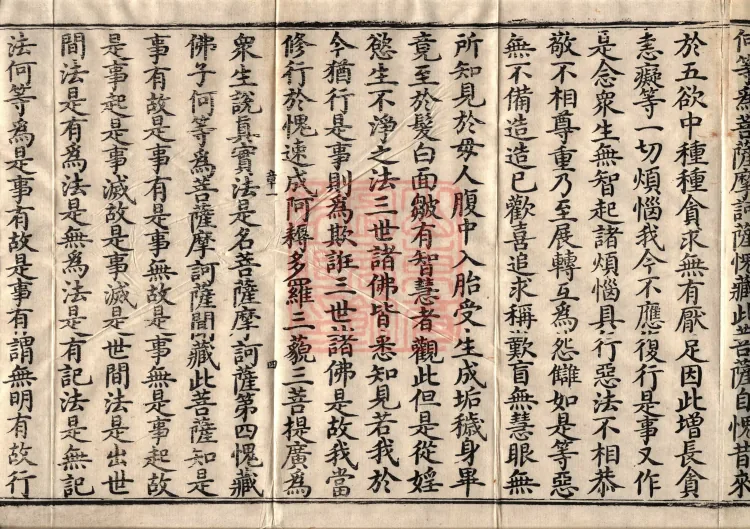 何等為菩薩摩訶薩愧藏此菩薩自愧昔來
於五欲中種種貪求無有厭足因此增長貪
恚癡等一切煩惱我今不應復行是事又作
是念眾生無智起諸煩惱具行惡法不相恭
敬不相尊重乃至展轉互為怨讎如是等惡
無不備造造已歡喜追求稱歎盲無慧眼無
所知見於母人腹中入胎受生成垢穢身畢
竟至於髮白面皺有智慧者觀此但是從婬
慾生不淨之法三世諸佛皆悉知見若我於
今猶行是事則為欺誑三世諸佛是故我當
修行於愧速成阿耨多羅三藐三菩提廣為
眾生說真實法是名菩薩摩訶薩第四愧藏
佛子何等為菩薩摩訶薩聞藏此菩薩知是
事有故是事有是事無故是事無是事起故
是事起是事滅故是事滅是世間法是出世
間法是有為法是無為法是有記法是無記
法何等為是事有故是事有謂無明有故行